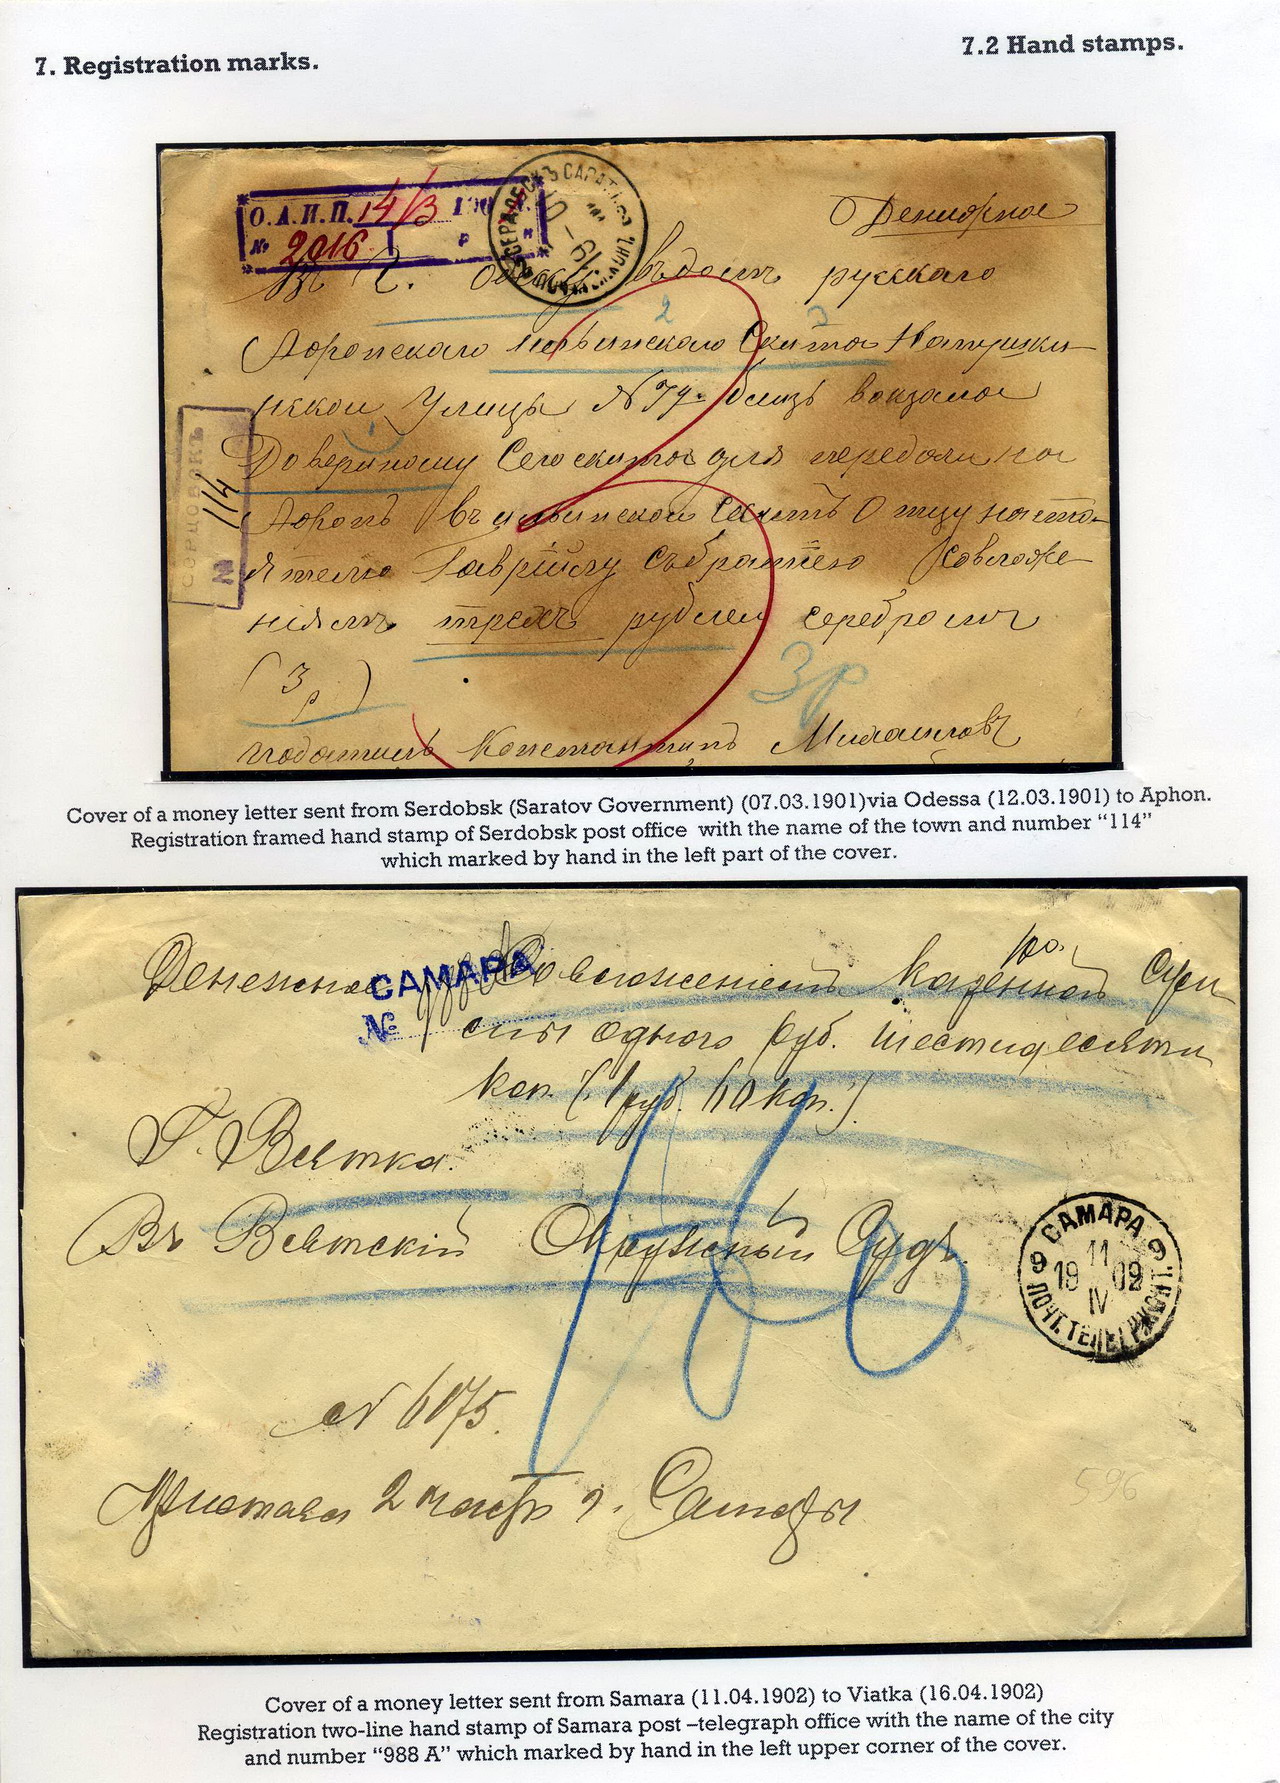 7. Registration marks.
7.2 Hand stamps.
О.А.И.П. 14/3 190
№ 2916
СЕРДОБСКЪ САРАТ.
Денежное
Въ г. Одессу въ домъ русскаго
Афонскаго Ильинскаго Скита
Улицы № 79. близь вокзала
Довѣренному Сего скита для передачи на
Афонъ въ Ильинской Скитъ Отцу насто-
ятелю Гавріилу Съ братією Совложе
ніямъ трехъ рублей серебромъ
(3 р)
3р
СЕРДОБСКЪ
№ 114
податель Константинъ Михаиловъ
Cover of a money letter sent from Serdobsk (Saratov Government) (07.03.1901)via Odessa (12.03.1901) to Aphon.
Registration framed hand stamp of Serdobsk post office with the name of the town and number “114”
which marked by hand in the left part of the cover.
Денежное Со вложеніемъ Казенной
САМАРА
№
суммы одного руб. шестидесяти
коп. (1 руб. 60 коп.)
Г. Вятка.
Въ Вятскій Окружный Судъ.
САМАРА
11
19 02
IV
9 9
ПОЧТ. ТЕЛЕГР. КОНТ.
№ 6175.
596
Пристава 2 части г. Самары
Cover of a money letter sent from Samara (11.04.1902) to Viatka (16.04.1902)
Registration two-line hand stamp of Samara post –telegraph office with the name of the city
and number “988 A” which marked by hand in the left upper corner of the cover.